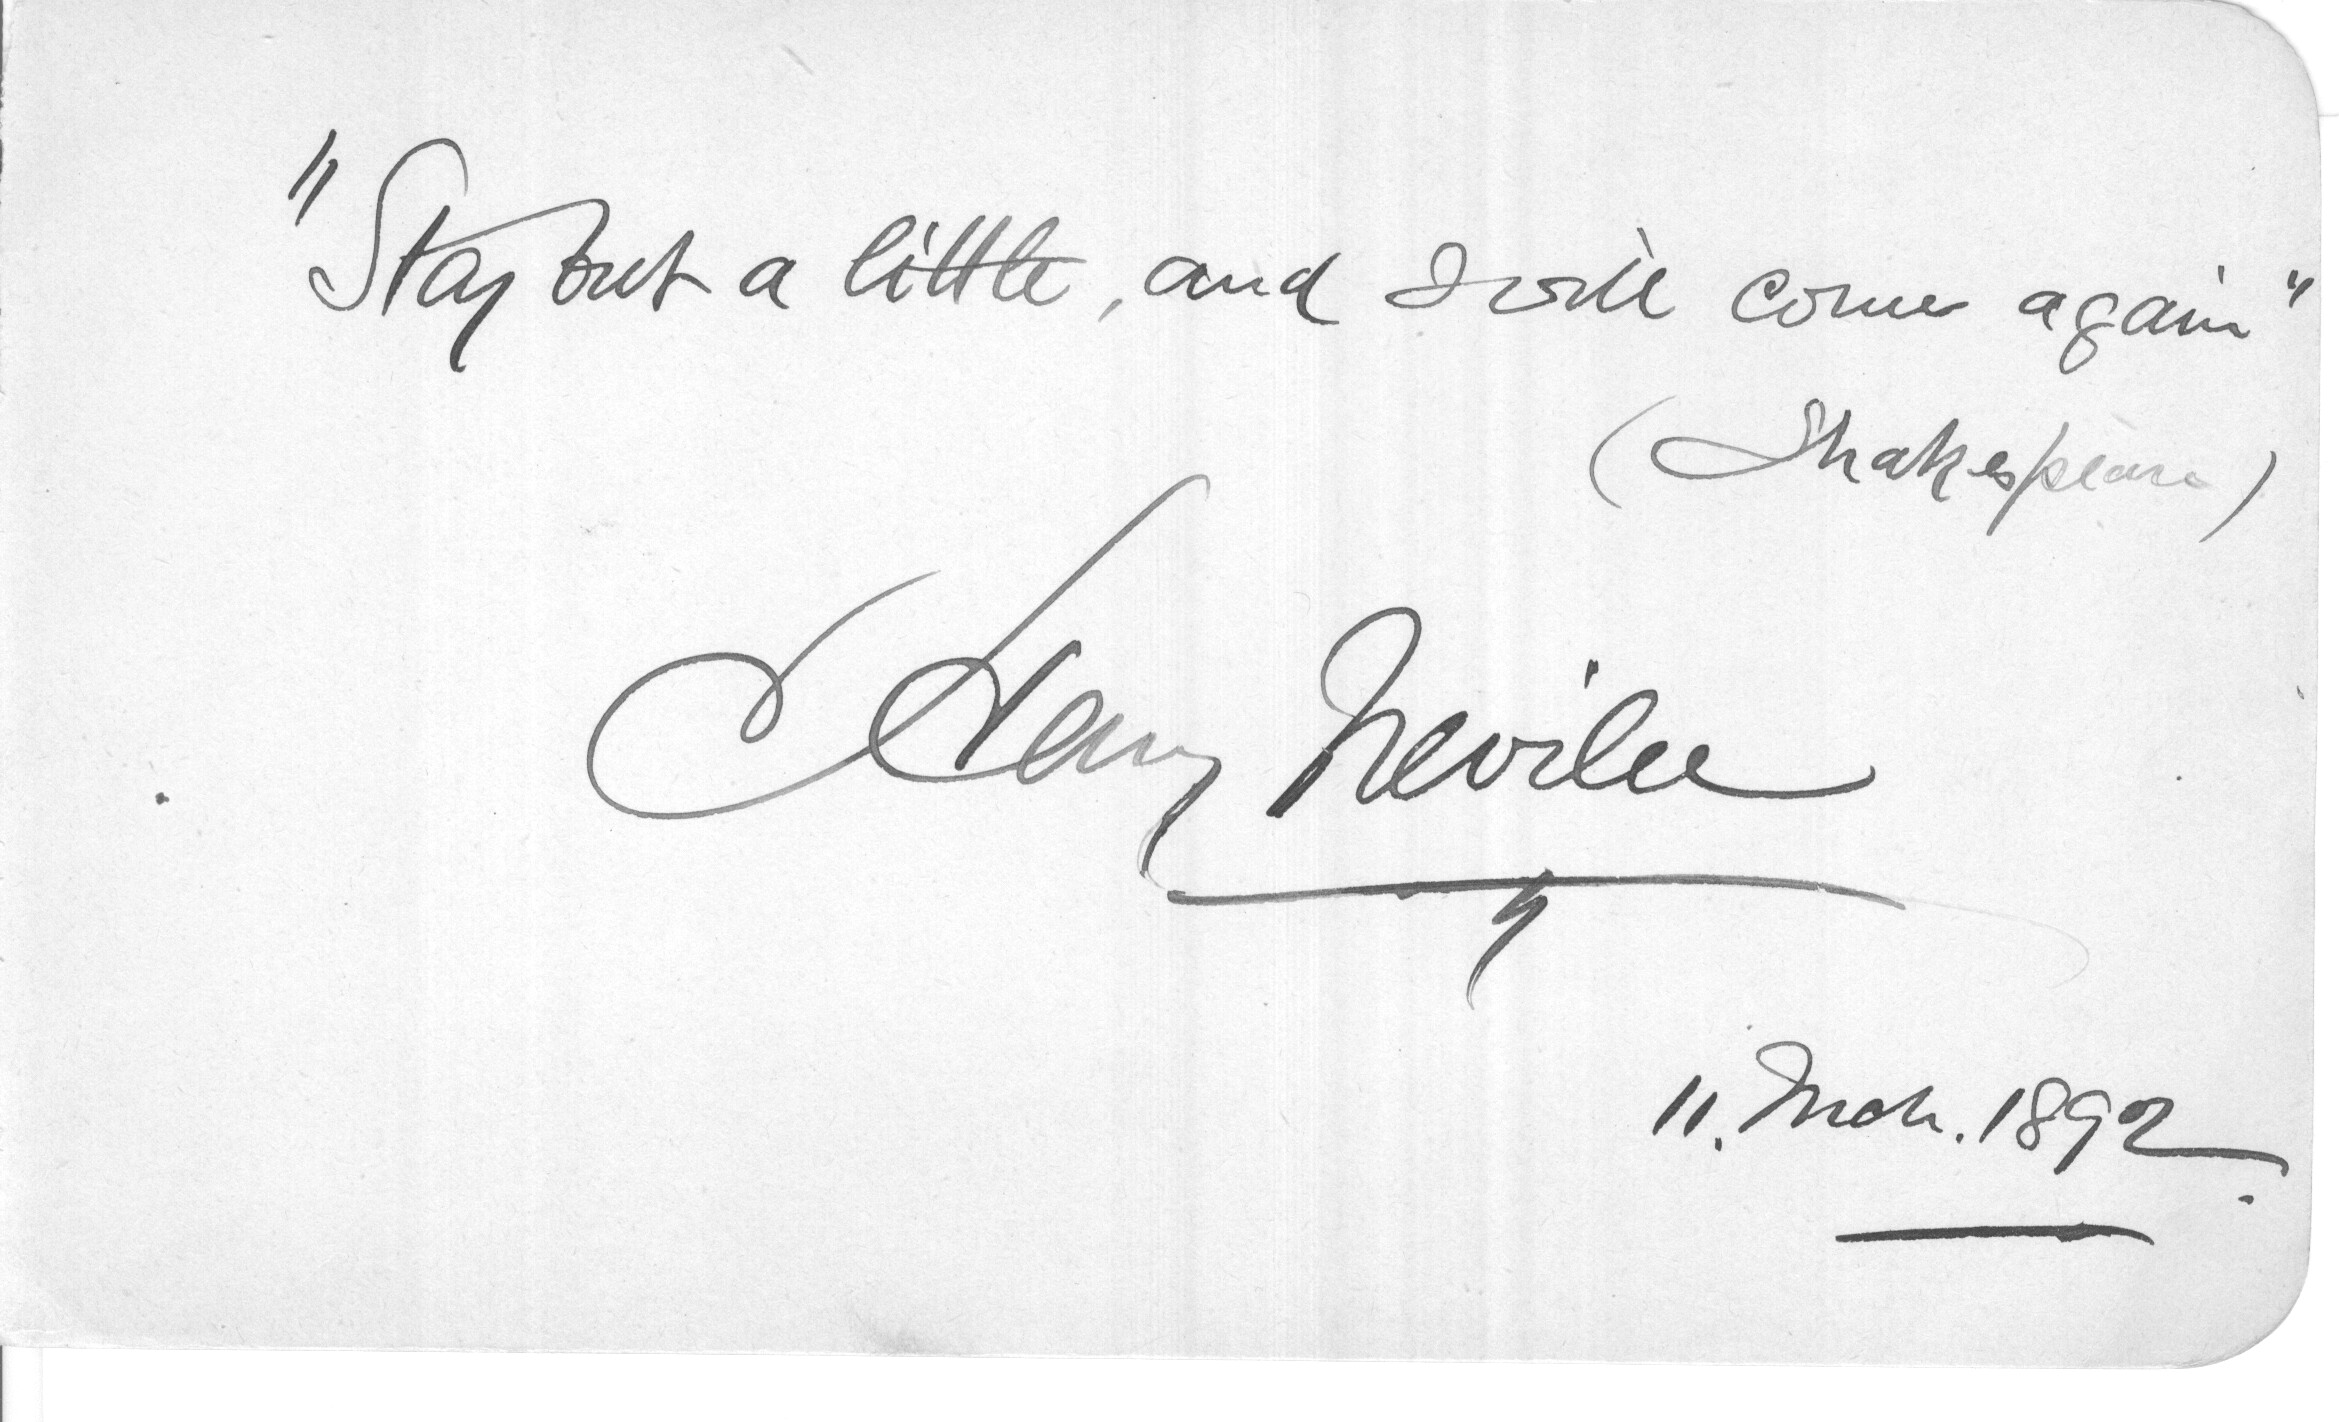 "Stay but a little, and I will come again"
(Shakespeare)
Henry Neville
11. Mch. 1892.